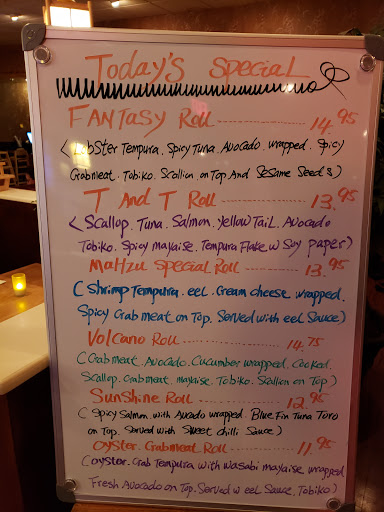 Today's Special
FANTASY Roll ---------- 14.95
(Lobster Tempura. Spicy Tuna. Avocado. wrapped. Spicy
Grabmeat. Tobiko. Scallion on Top And Sesame Seed's)
T And T Roll ---------- 13.95
(Scallop. Tuna. Salmon. Yellow Tail. Avocado
Tobiko. Spicy mayaise. Tempura Flake w Soy paper)
Maltzu Special Roll ---------- 13.95
(Shrimp Tempura. eel. Cream cheese wrapped.
Spicy Grab meat on Top. Served with eel Sauce)
Volcano Roll ---------- 14.75
(Grabmeat. Avocado. Cucumber wrapped. Cooked.
Scallop. Grabmeat. mayaise. Tobiko. Scallion on Top)
Sunshine Roll ---------- 12.95
(Spicy Salmon. with Avocado wrapped. Blue Fin Tuna Toro
on Top. Served with Sweet chilli Sauce)
Oyster. Grabmeat Roll ---------- 11.95
(oyster. Grab Tempura with wasabi mayaise wrapped
Fresh Avocado on Top. Served w eel Sauce. Tobiko)